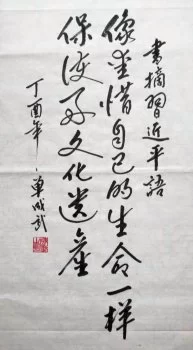 書摘習近平語
像愛惜自己的生命一样
保護好文化遺產
丁酉年